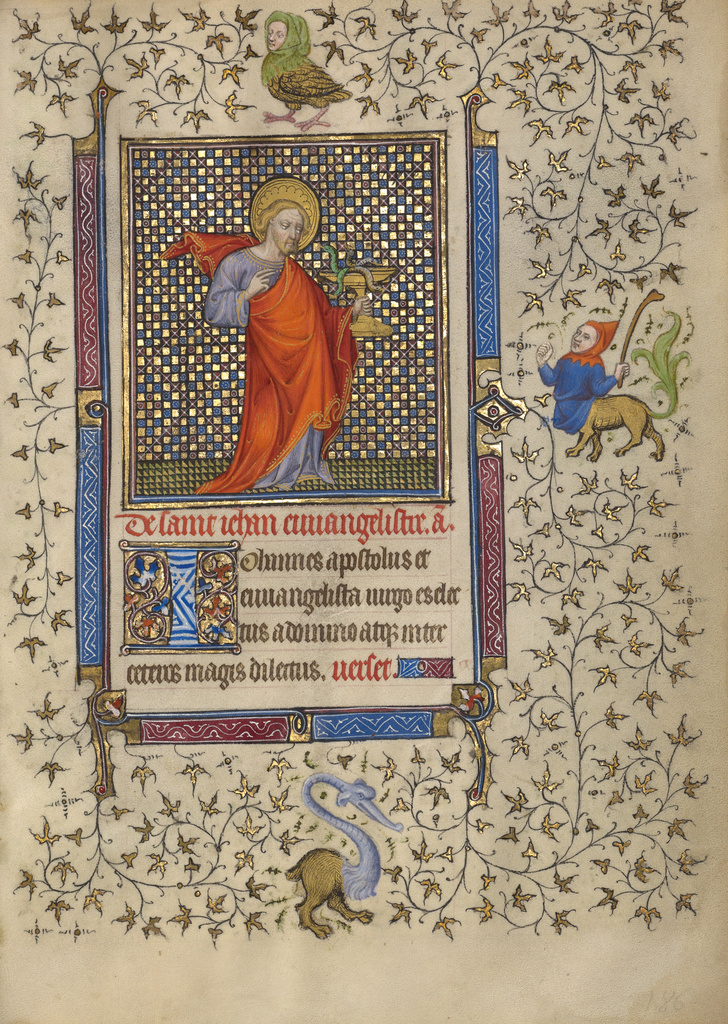 De saint iehan euuangelistre. a.
Iohannes apostolus et
euuangelista uirgo es elec
tus a domino atq; inter
ceteros magis dilectus. uerset.
186